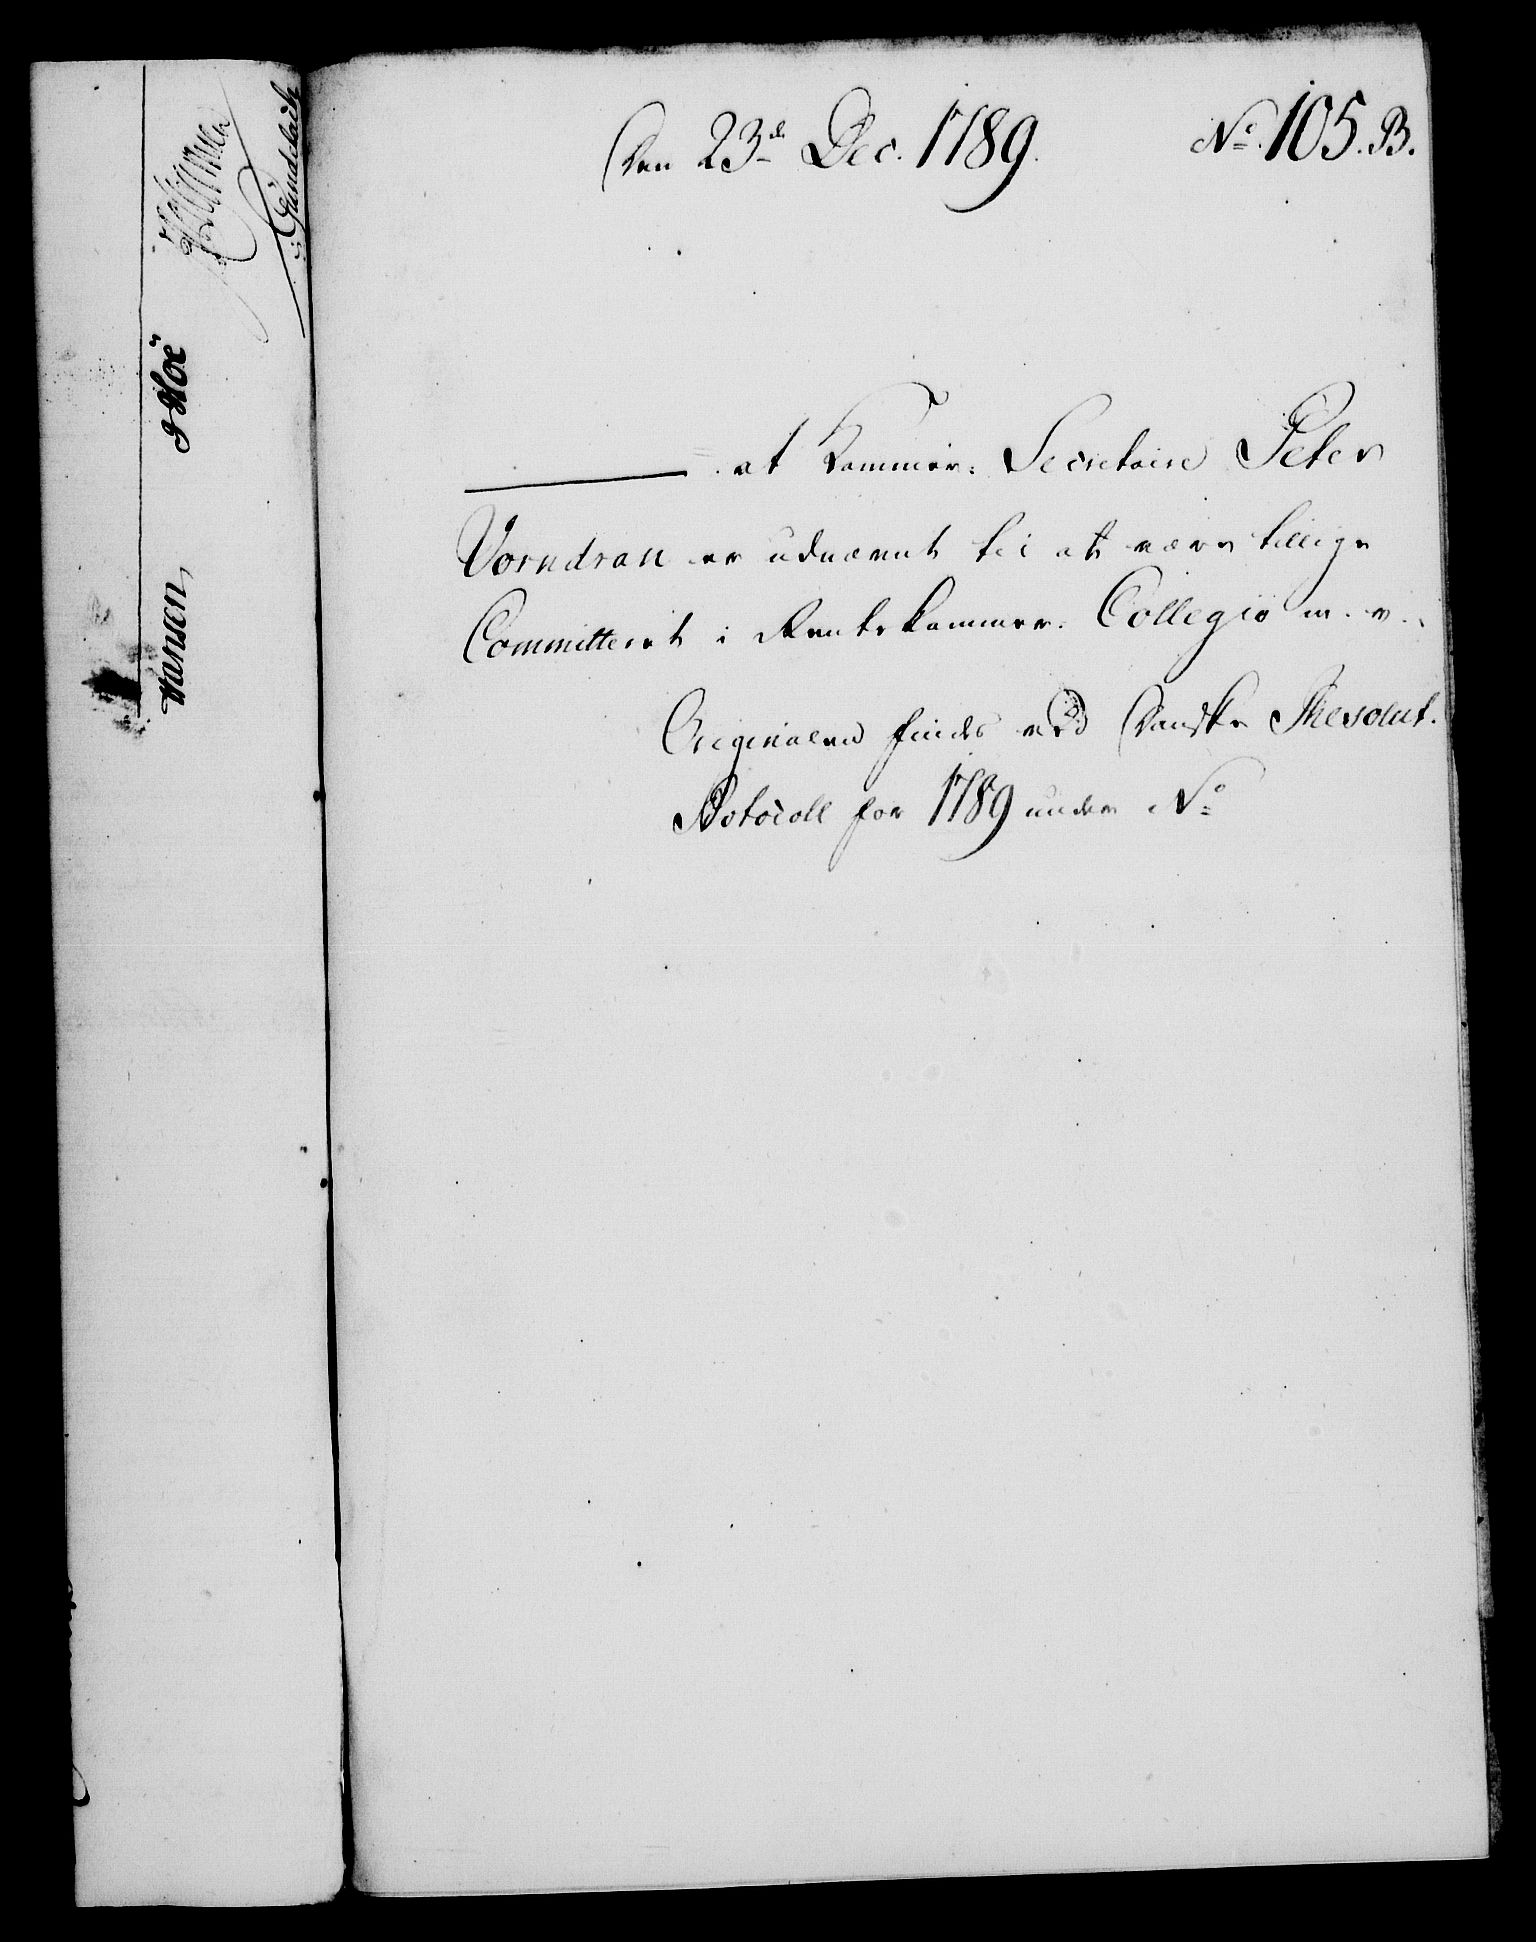 Den 23de Dec. 1789. No. 105. B.
at Kammer: Secretaire Peter
Vorndran er udnævnt til at være tillige
Committeret i Rentekammer: Collegio m. v.
Originalen findes ved Danske Resolut.
Protocoll for 1789 under No
Hansen
Höe
Gundelach